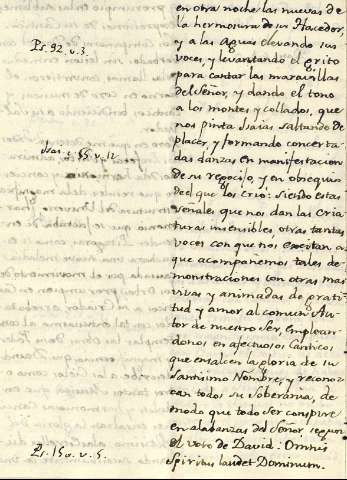 en otra noche las nuevas de
la hermosura de su Hacedor,
y a las Aguas elevando sus
Ps. 92. v. 3.
voces, y levantando el grito
para cantar las maravillas
del Señor, y dando el tono
a los montes y collados, que
nos pinta Isaias saltando de
Isai. 55. v. 12
placer, y formando concerta-
das danzas en manifestacion
de su regocijo, y en obsequio
del que los crió: siendo estas
señales que nos dan las cria-
turas insensibles, otras tantas
voces con que nos excitan a
que acompañemos tales de-
monstraciones con otras mas
vivas y animadas de grati-
tud y amor al comun Au-
tor de nuestro Ser, emplean-
donos en afectuosos Canticos
que ensalcen la gloria de su
Santisimo Nombre, y reconoz-
can todos su Soberania, de
modo que todo ser conspire
en alabanzas del Señor segun
Ps. 150. v. 5.
el voto de David: Omnis
Spiritus laudet Dominum.